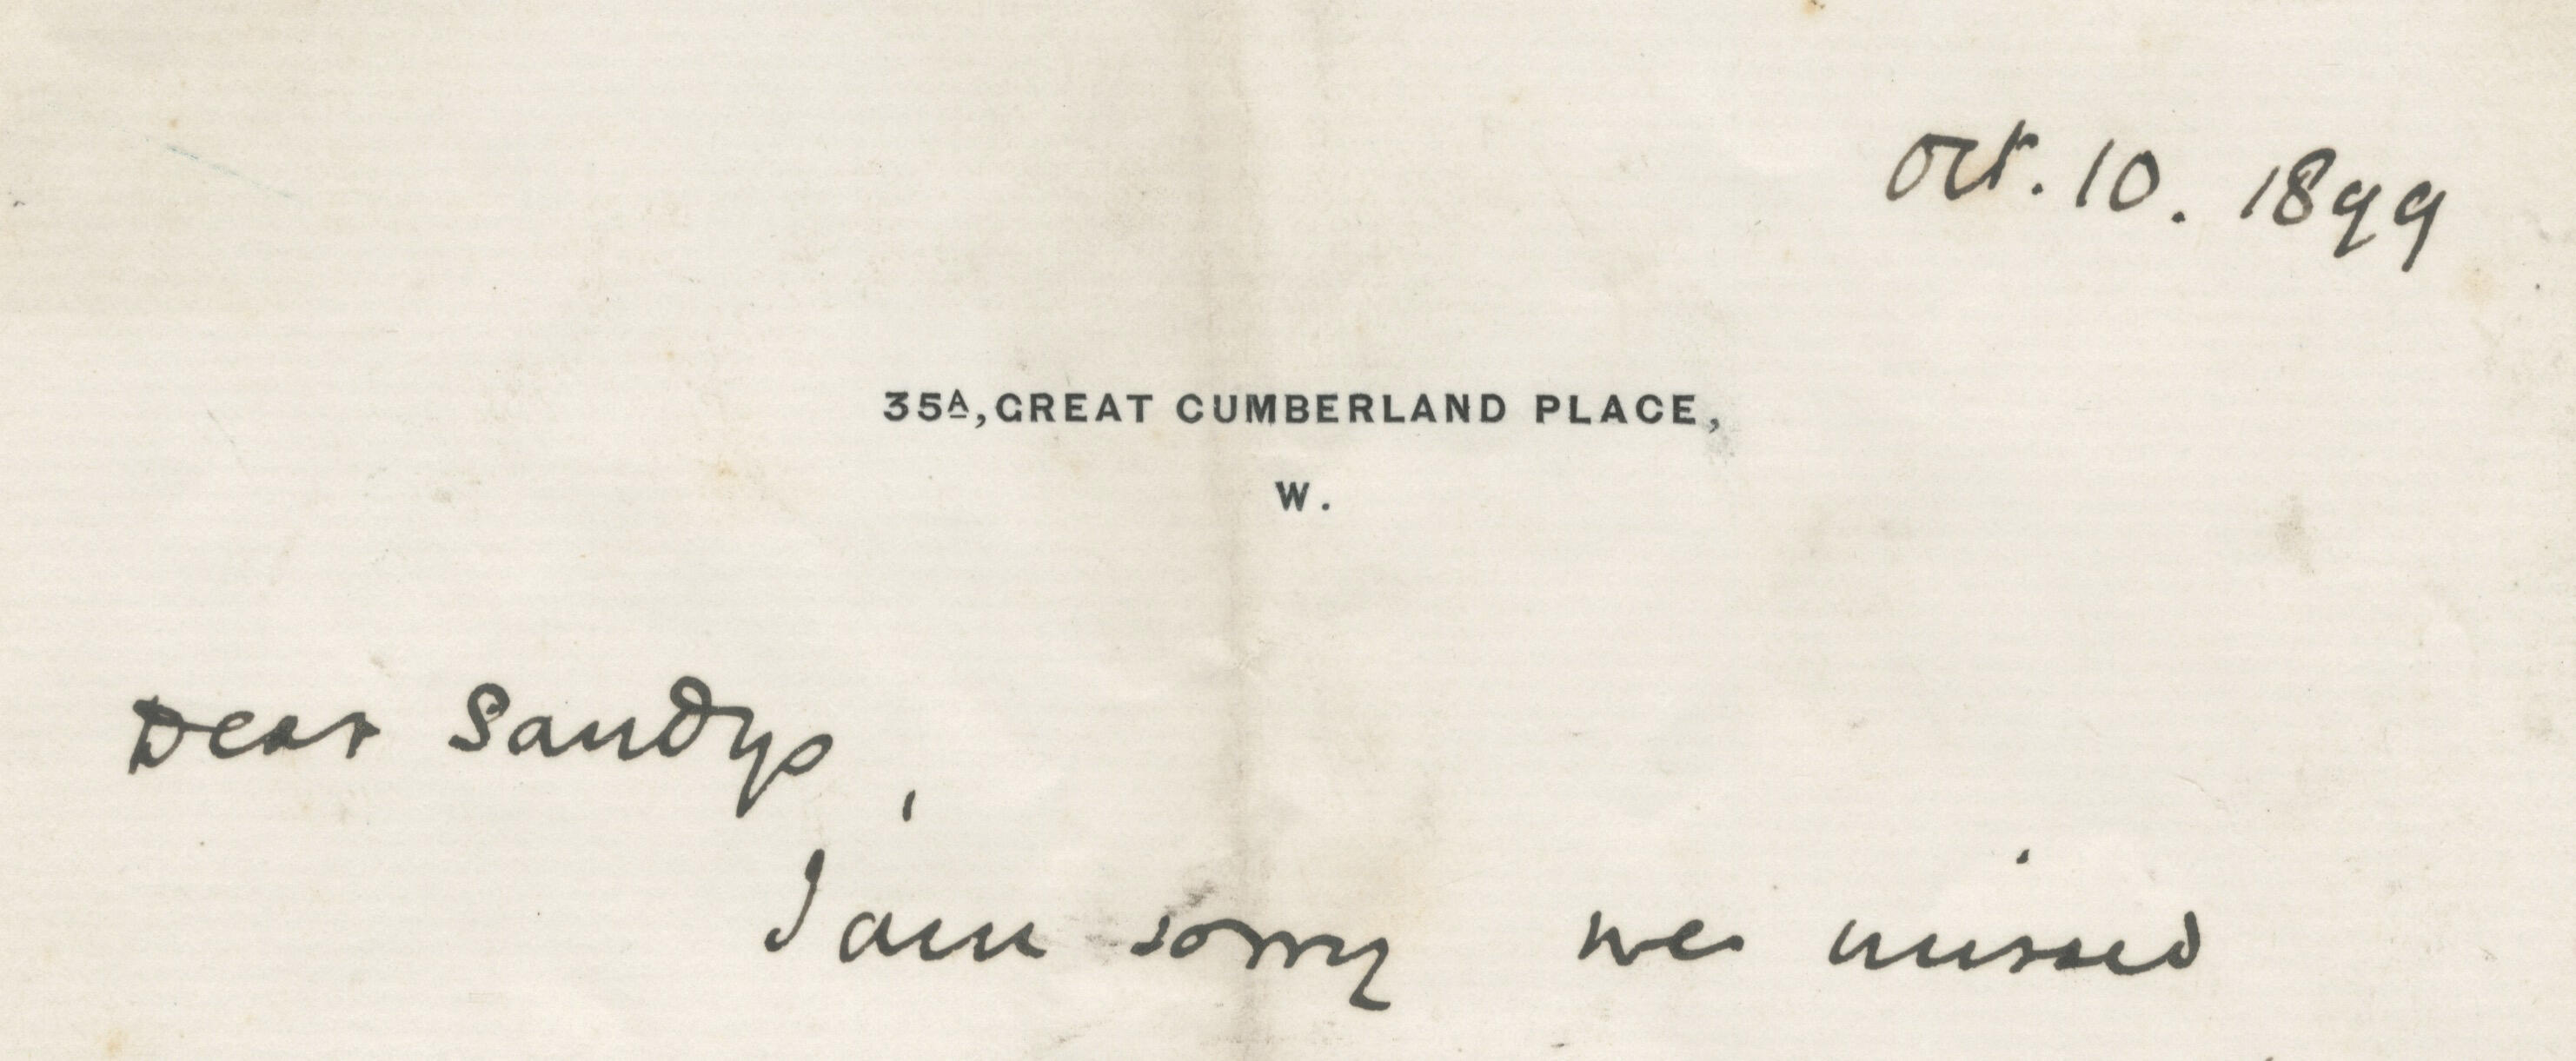 Oct. 10. 1899
35A, GREAT CUMBERLAND PLACE,
W.
Dear Sandys,
I am sorry we missed